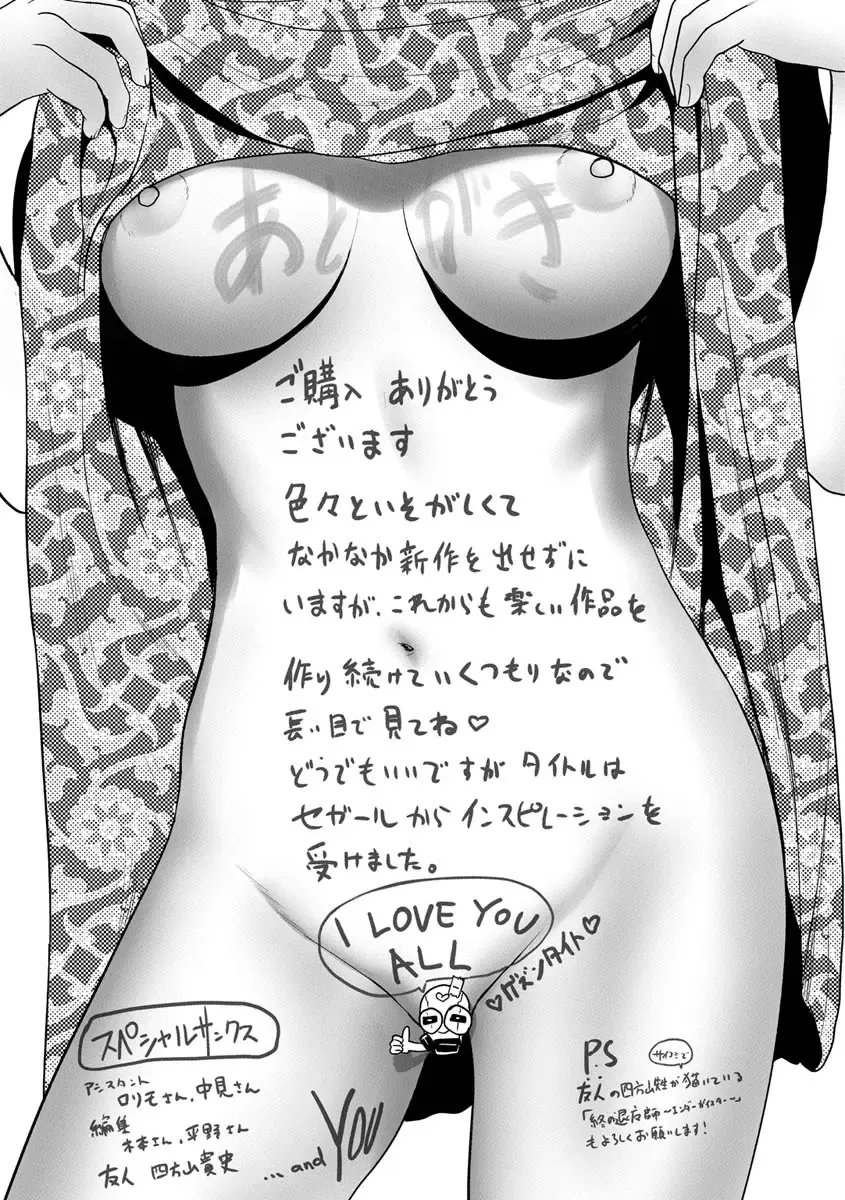 あとがき
ご購入 ありがとう
ございます
色々といそがしくて
なかなか新作を出せずに
いますが、これからも楽しい作品を
作り続けていくつもりなので
長い目で見てね♡
どうでもいいですが タイトルは
セガールから インスピレーションを
受けました。
I LOVE YOU
ALL
♡ゲズンタイト♡
スペシャルサンクス
アシスタント
ロリモさん、中見さん
編集
木本さん、平野さん
友人 四方山貴史
...and YOU
P.S
サイコミで
友人の四方山貴史が描いている
「終の退魔師〜エンダーガイスター〜」
もよろしくお願いします!